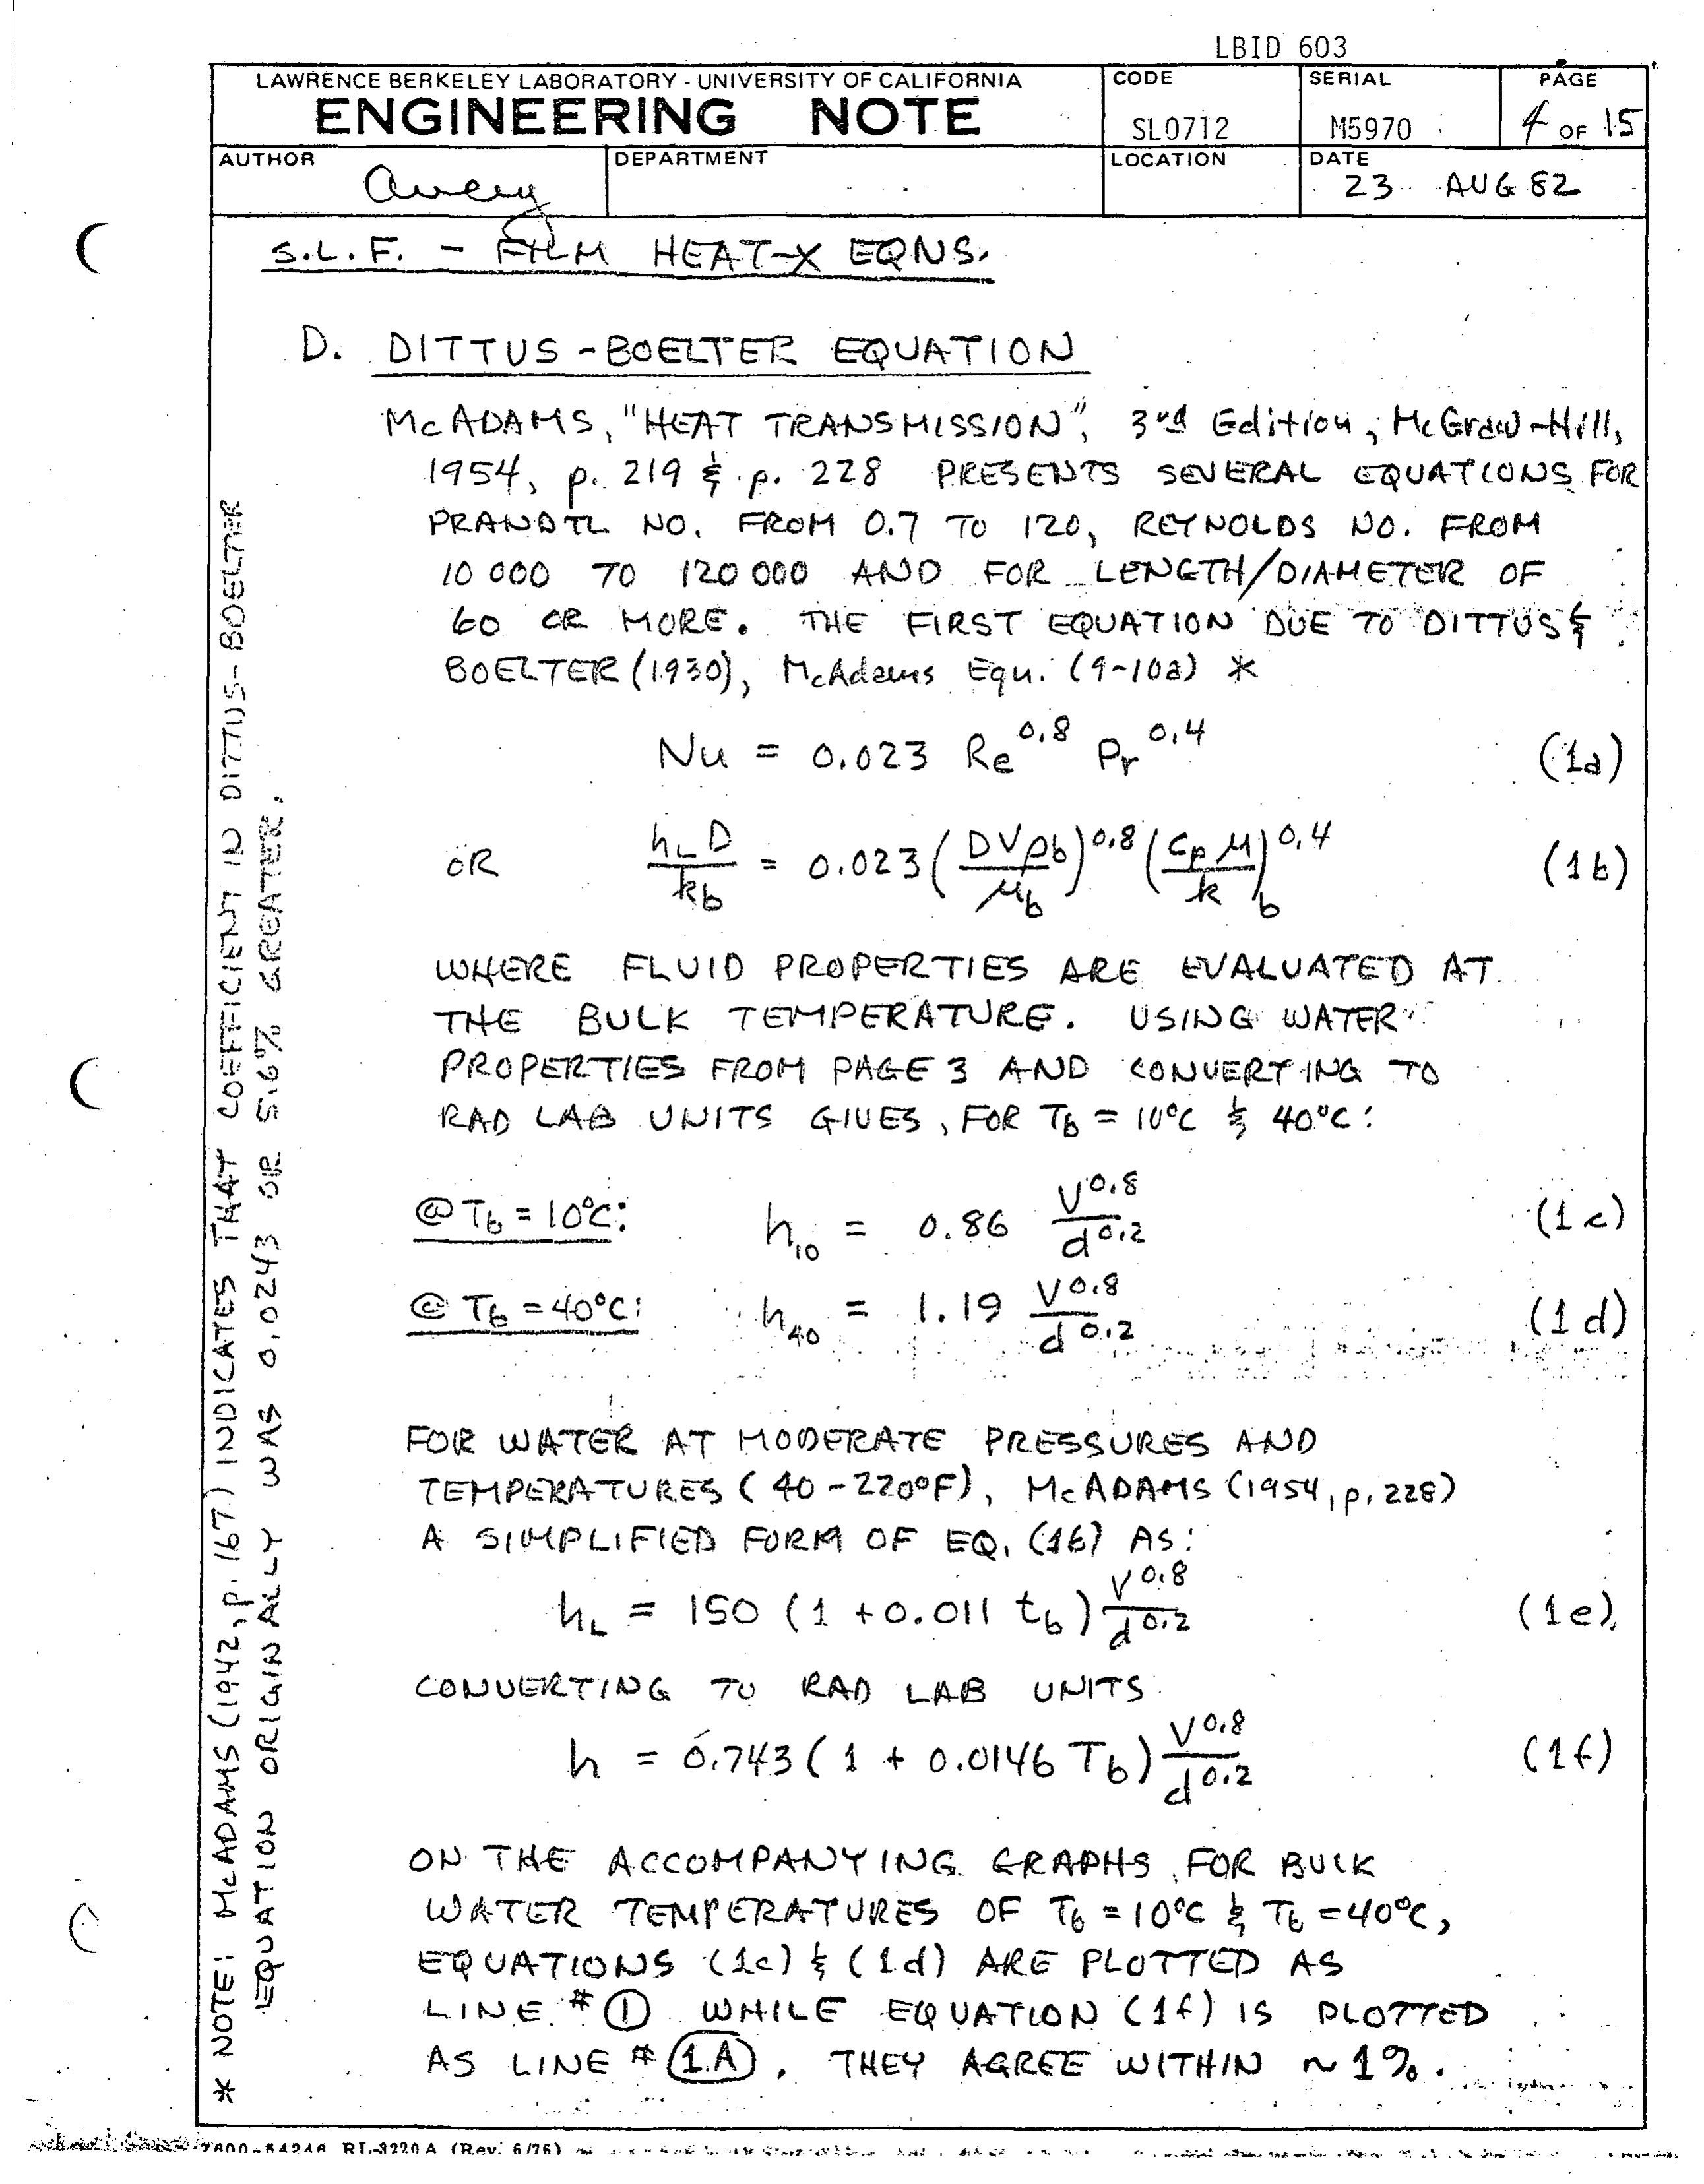 LBID 603
LAWRENCE BERKELEY LABORATORY - UNIVERSITY OF CALIFORNIA
ENGINEERING NOTE
CODE
SL0712
SERIAL
M5970
PAGE
4 OF 15
AUTHOR
Avery
DEPARTMENT
LOCATION
DATE
23 AUG 82
S.L.F. - FILM HEAT-X EQNS.
D. DITTUS-BOELTER EQUATION
McADAMS, "HEAT TRANSMISSION", 3rd Edition, McGraw-Hill,
1954, p. 219 & p. 228 PRESENTS SEVERAL EQUATIONS FOR
PRANDTL NO. FROM 0.7 TO 120, REYNOLDS NO. FROM
10 000 TO 120 000 AND FOR LENGTH/DIAMETER OF
60 OR MORE. THE FIRST EQUATION DUE TO DITTUS &
BOELTER (1930), McAdams Equ. (9-10a) *
Nu = 0.023 Re^0.8 Pr^0.4 (1a)
OR h_L D / k_b = 0.023 (DVρ_b / μ_b)^0.8 (c_p μ / k)_b^0.4 (1b)
WHERE FLUID PROPERTIES ARE EVALUATED AT
THE BULK TEMPERATURE. USING WATER
PROPERTIES FROM PAGE 3 AND CONVERTING TO
RAD LAB UNITS GIVES, FOR T_b = 10°C & 40°C:
@ T_b = 10°C: h_10 = 0.86 V^0.8 / d^0.2 (1c)
@ T_b = 40°C: h_40 = 1.19 V^0.8 / d^0.2 (1d)
FOR WATER AT MODERATE PRESSURES AND
TEMPERATURES (40-220°F), McADAMS (1954, p. 228)
A SIMPLIFIED FORM OF EQ. (1b) AS:
h_L = 150 (1 + 0.011 t_b) V^0.8 / d^0.2 (1e)
CONVERTING TO RAD LAB UNITS
h = 0.743 (1 + 0.0146 T_b) V^0.8 / d^0.2 (1f)
ON THE ACCOMPANYING GRAPHS, FOR BULK
WATER TEMPERATURES OF T_b = 10°C & T_b = 40°C,
EQUATIONS (1c) & (1d) ARE PLOTTED AS
LINE # 1 WHILE EQUATION (1f) IS PLOTTED
AS LINE # 1.A. THEY AGREE WITHIN ~ 1%.
* NOTE: McADAMS (1942, p. 167) INDICATES THAT COEFFICIENT IN DITTUS-BOELTER
EQUATION ORIGINALLY WAS 0.0243 OR 5.67% GREATER.
7600-54246 RL-3220A (Rev. 6/76)